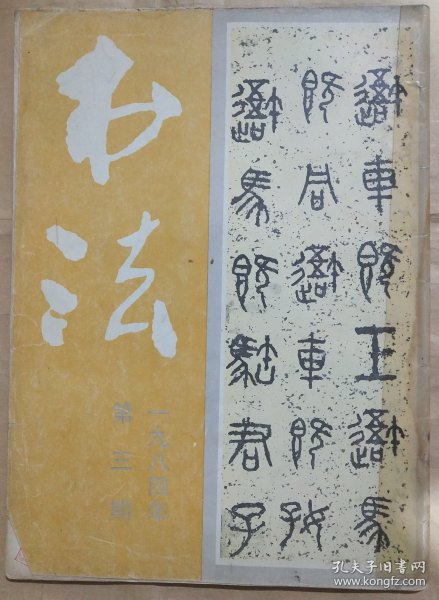 书法
一九八四年
第三期
避車既工避馬
既同避車既好
避馬既君子
孔夫子旧书网
www.kongfz.com